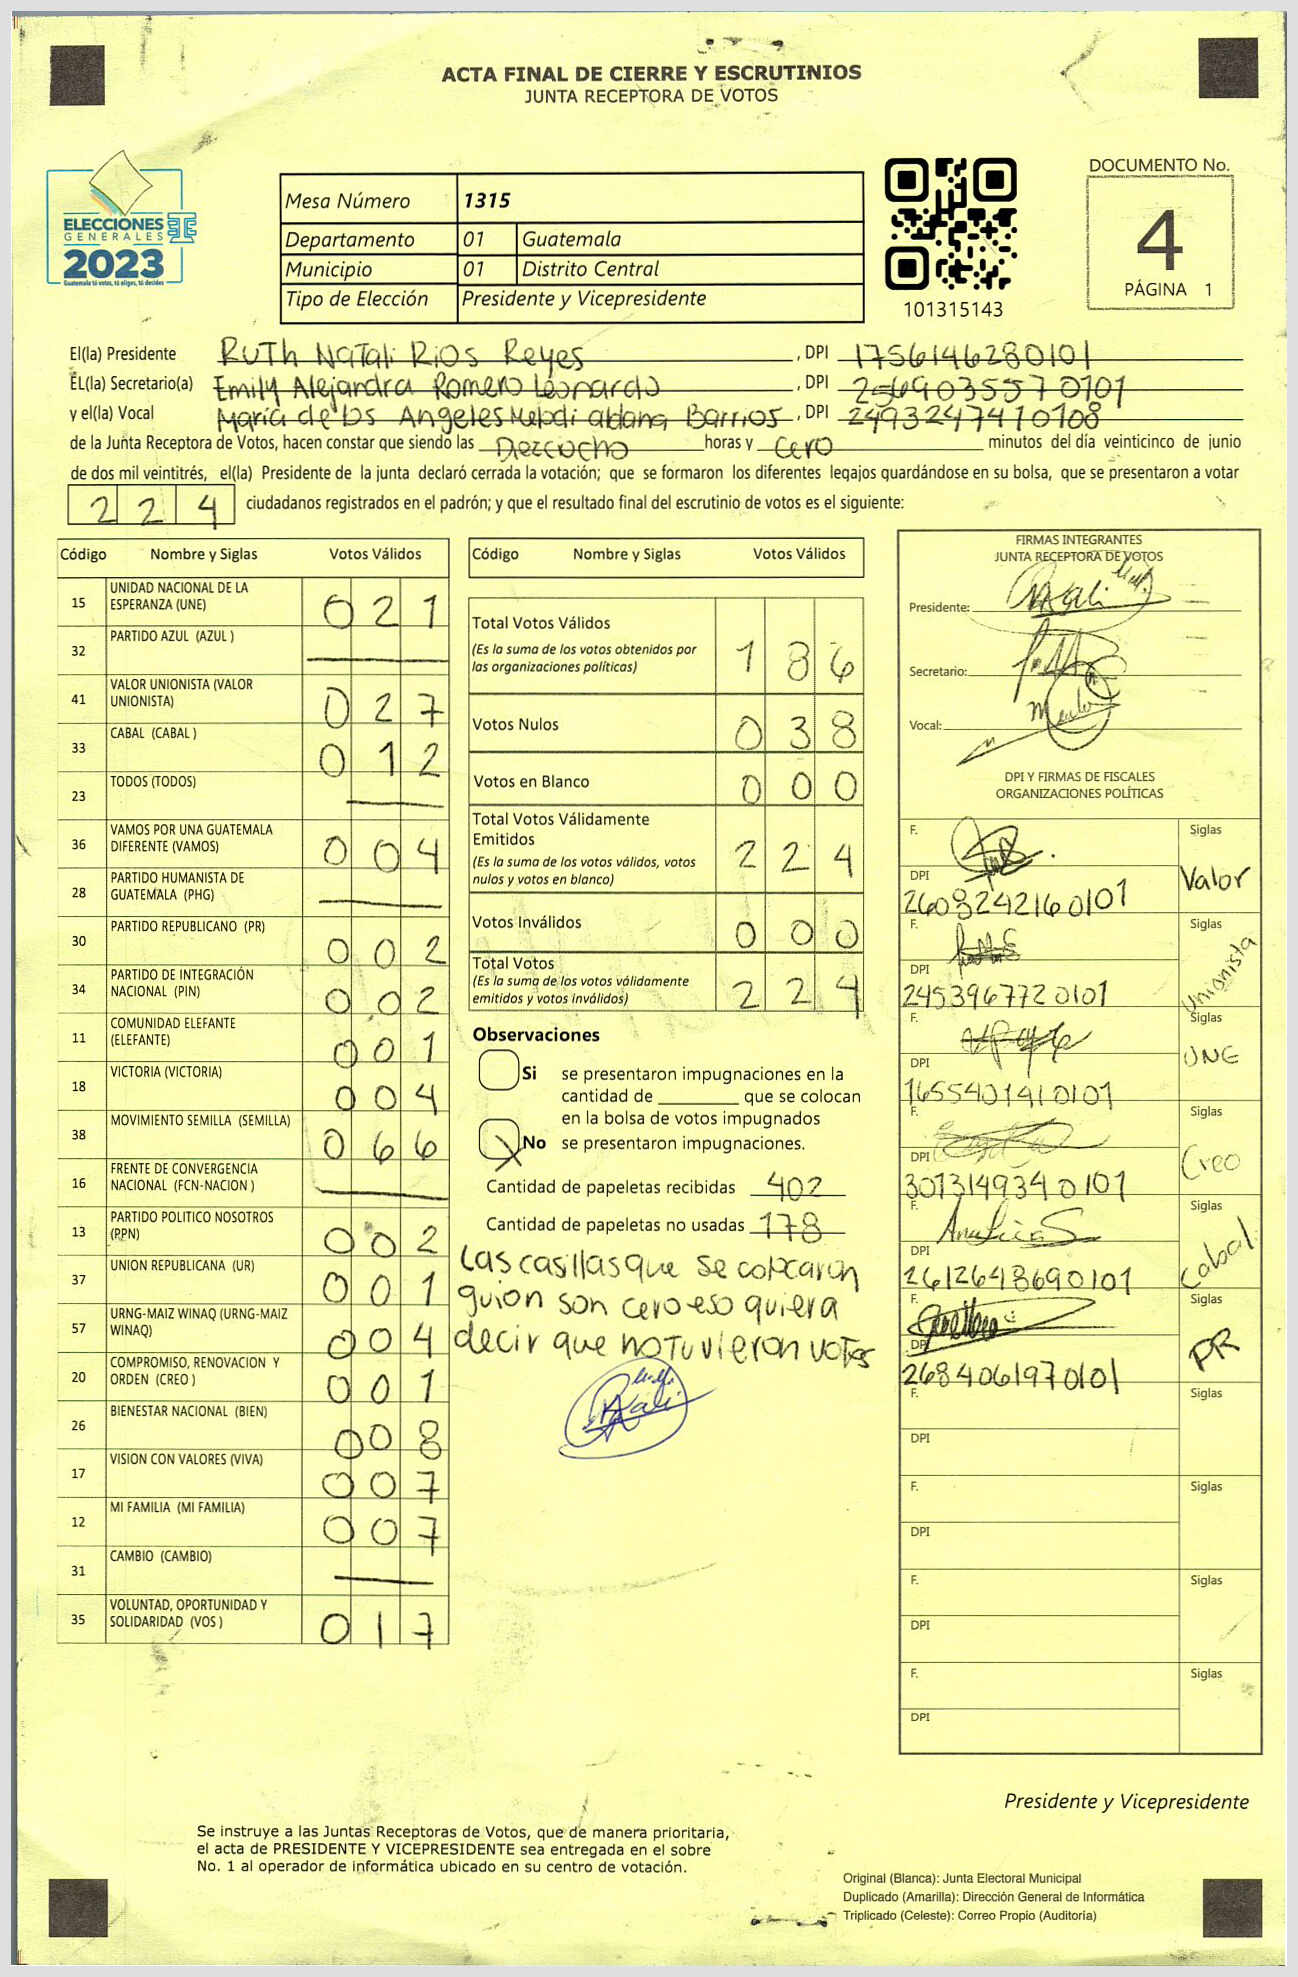 ACTA FINAL DE CIERRE Y ESCRUTINIOS
JUNTA RECEPTORA DE VOTOS
ELECCIONES
GENERALES
2023
Guatemala tú votas, tú eliges, tú decides
Mesa Número 1315
Departamento 01 Guatemala
Municipio 01 Distrito Central
Tipo de Elección Presidente y Vicepresidente
101315143
DOCUMENTO No.
4
PÁGINA 1
El(la) Presidente Ruth Natali Rios Reyes, DPI 1756146280101
EL(la) Secretario(a) Emily Alejandra Romero Leonardo, DPI 2569035570101
y el(la) Vocal María de los Angeles Melodi aldana Barrios, DPI 2493247410108
de la Junta Receptora de Votos, hacen constar que siendo las Dieciocho horas y cero minutos del día veinticinco de junio
de dos mil veintitrés, el(la) Presidente de la junta declaró cerrada la votación; que se formaron los diferentes legajos guardándose en su bolsa, que se presentaron a votar
224 ciudadanos registrados en el padrón; y que el resultado final del escrutinio de votos es el siguiente:
Código Nombre y Siglas Votos Válidos
15 UNIDAD NACIONAL DE LA ESPERANZA (UNE) 021
32 PARTIDO AZUL (AZUL )
41 VALOR UNIONISTA (VALOR UNIONISTA) 027
33 CABAL (CABAL ) 012
23 TODOS (TODOS)
36 VAMOS POR UNA GUATEMALA DIFERENTE (VAMOS) 004
28 PARTIDO HUMANISTA DE GUATEMALA (PHG)
30 PARTIDO REPUBLICANO (PR) 002
34 PARTIDO DE INTEGRACIÓN NACIONAL (PIN) 002
11 COMUNIDAD ELEFANTE (ELEFANTE) 001
18 VICTORIA (VICTORIA) 004
38 MOVIMIENTO SEMILLA (SEMILLA) 066
16 FRENTE DE CONVERGENCIA NACIONAL (FCN-NACION )
13 PARTIDO POLITICO NOSOTROS (PPN) 002
37 UNION REPUBLICANA (UR) 001
57 URNG-MAIZ WINAQ (URNG-MAIZ WINAQ) 004
20 COMPROMISO, RENOVACION Y ORDEN (CREO ) 001
26 BIENESTAR NACIONAL (BIEN) 008
17 VISION CON VALORES (VIVA) 007
12 MI FAMILIA (MI FAMILIA) 007
31 CAMBIO (CAMBIO)
35 VOLUNTAD, OPORTUNIDAD Y SOLIDARIDAD (VOS ) 017
Código Nombre y Siglas Votos Válidos
Total Votos Válidos 186
(Es la suma de los votos obtenidos por
las organizaciones políticas)
Votos Nulos 038
Votos en Blanco 000
Total Votos Válidamente
Emitidos 224
(Es la suma de los votos válidos, votos
nulos y votos en blanco)
Votos Inválidos 000
Total Votos
(Es la suma de los votos válidamente
emitidos y votos inválidos) 224
Observaciones
Si se presentaron impugnaciones en la
cantidad de ________ que se colocan
en la bolsa de votos impugnados
X No se presentaron impugnaciones.
Cantidad de papeletas recibidas 402
Cantidad de papeletas no usadas 178
Las casillas que se colocaron
guion son cero eso quiera
decir que no tuvieron votos
FIRMAS INTEGRANTES
JUNTA RECEPTORA DE VOTOS
Presidente:
Secretario:
Vocal:
DPI Y FIRMAS DE FISCALES
ORGANIZACIONES POLÍTICAS
F. Siglas
DPI Valor
2608242160101
F. Siglas
DPI Unionista
2453967720101
F. Siglas
DPI UNE
1655401410101
F. Siglas
DPI Creo
3013149340101
F. Siglas
DPI Cabal
2612648690101
F. Siglas
DPI PR
2684061970101
F. Siglas
DPI
F. Siglas
DPI
F. Siglas
DPI
F. Siglas
DPI
Presidente y Vicepresidente
Se instruye a las Juntas Receptoras de Votos, que de manera prioritaria,
el acta de PRESIDENTE Y VICEPRESIDENTE sea entregada en el sobre
No. 1 al operador de informática ubicado en su centro de votación.
Original (Blanca): Junta Electoral Municipal
Duplicado (Amarilla): Dirección General de Informática
Triplicado (Celeste): Correo Propio (Auditoría)